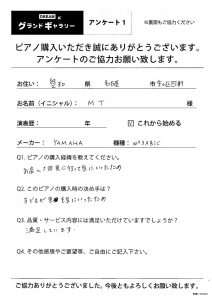 DREAM ×
グランドギャラリー アンケート1 ※裏面もご協力ください
ピアノ購入いただき誠にありがとうございます。
アンケートのご協力お願い致します。
お住い: 愛知 県 名古屋 市
お名前(イニシャル): M T 様
演奏歴: 年 ☑ これから始める
メーカー: YAMAHA 機種:
Q1. ピアノの購入経緯を教えてください。
Q2. このピアノの購入時の決め手は?
子どもが
気に入ったため
Q3. 品質・サービス内容には満足いただけていますでしょうか?
満足しています
Q4. その他感想やご要望等、ご自由にご記入下さい。
ご協力ありがとうございました。今後ともよろしくお願い致します。